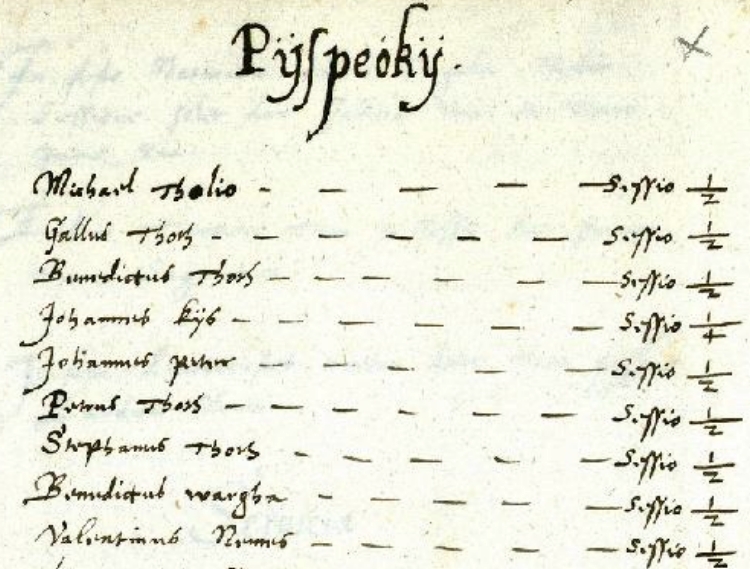 Pÿspeökÿ.
Michael Tholio - - - - - Sessio 1/2
Gallus Thoth - - - - - Sessio 1/2
Benedictus Thoth - - - - - Sessio 1/2
Johannes kÿs - - - - - Sessio 1/4
Johannes peter - - - - - Sessio 1/2
Petrus Thoth - - - - - Sessio 1/2
Stephanus Thoth - - - - Sessio 1/2
Benedictus wargha - - - - Sessio 1/2
Valentinus Nemes - - - - Sessio 1/2